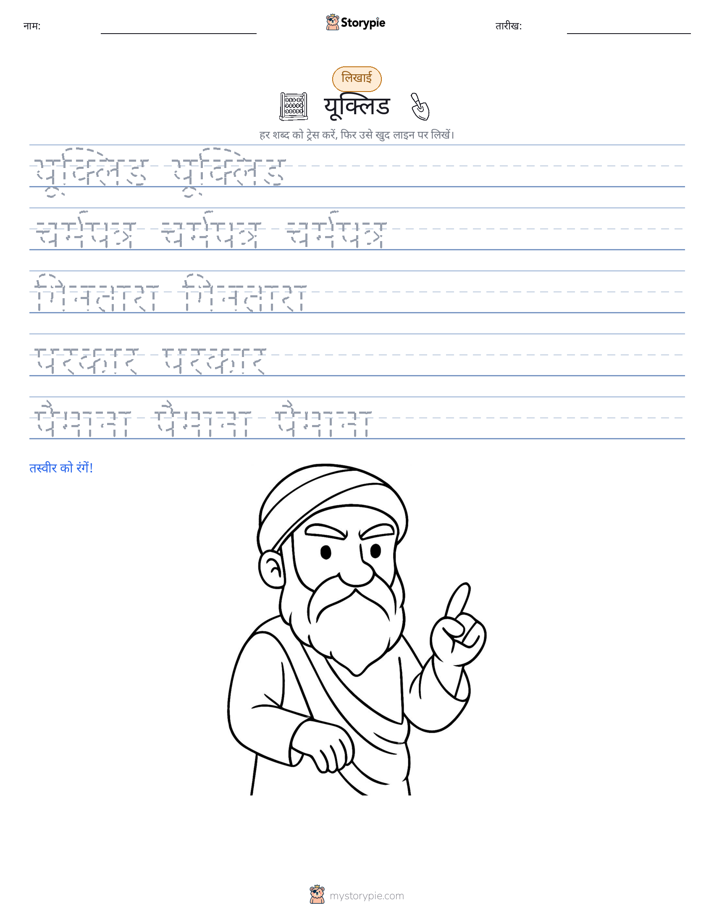 नाम:
Storypie
तारीख:
लिखाई
यूक्लिड
हर शब्द को ट्रेस करें, फिर उसे खुद लाइन पर लिखें।
यूक्लिड यूक्लिड
चर्मपत्र चर्मपत्र चर्मपत्र
गिनतारा गिनतारा
परकार परकार
पैमाना पैमाना पैमाना
तस्वीर को रंगें!
mystorypie.com